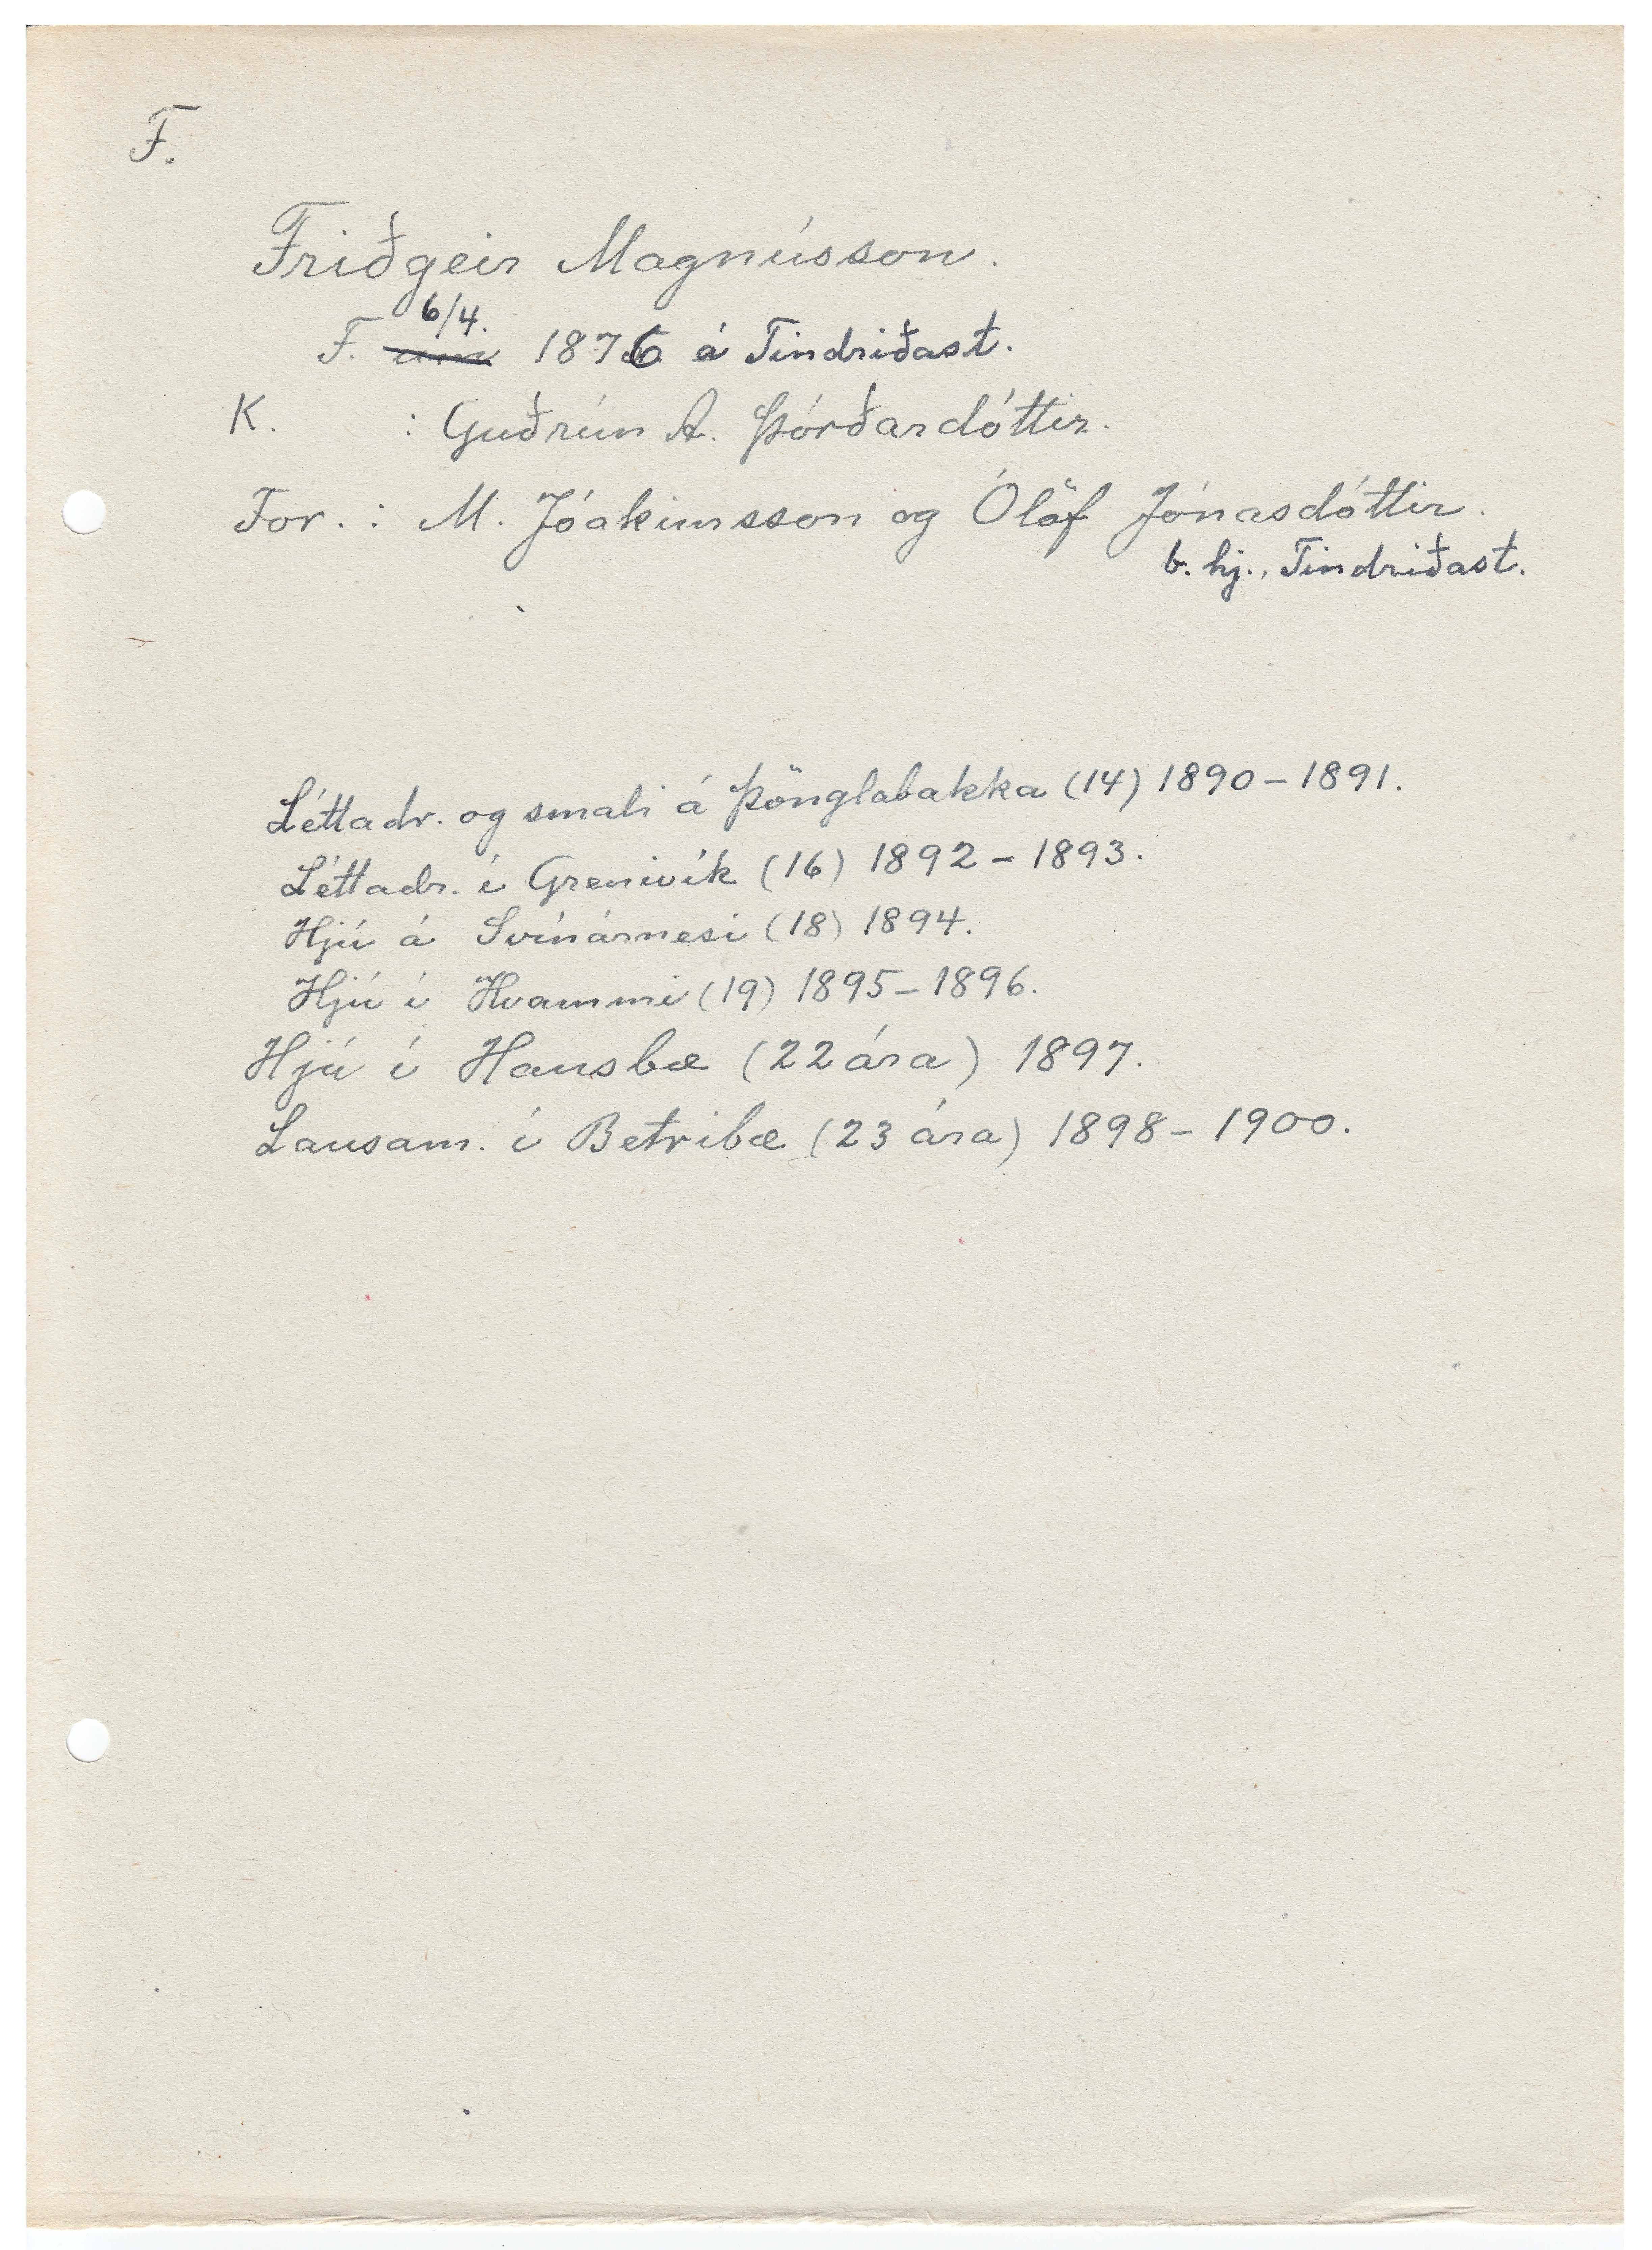 F.
Friðgeir Magnússon.
6/4.
F. um 1876 á Tindriðast.
K. : Guðrún A. Þórðardóttir.
For. : M. Jóakimsson og Ólöf Jónasdóttir.
b. hj., Tindriðast.
Léttadr. og smali á Þönglabakka (14) 1890-1891.
Léttadr. í Grenivík (16) 1892-1893.
Hjú á Svínárnesi (18) 1894.
Hjú í Hvammi (19) 1895-1896.
Hjú í Hausbæ (22 ára) 1897.
Lausam. í Betribæ (23 ára) 1898-1900.